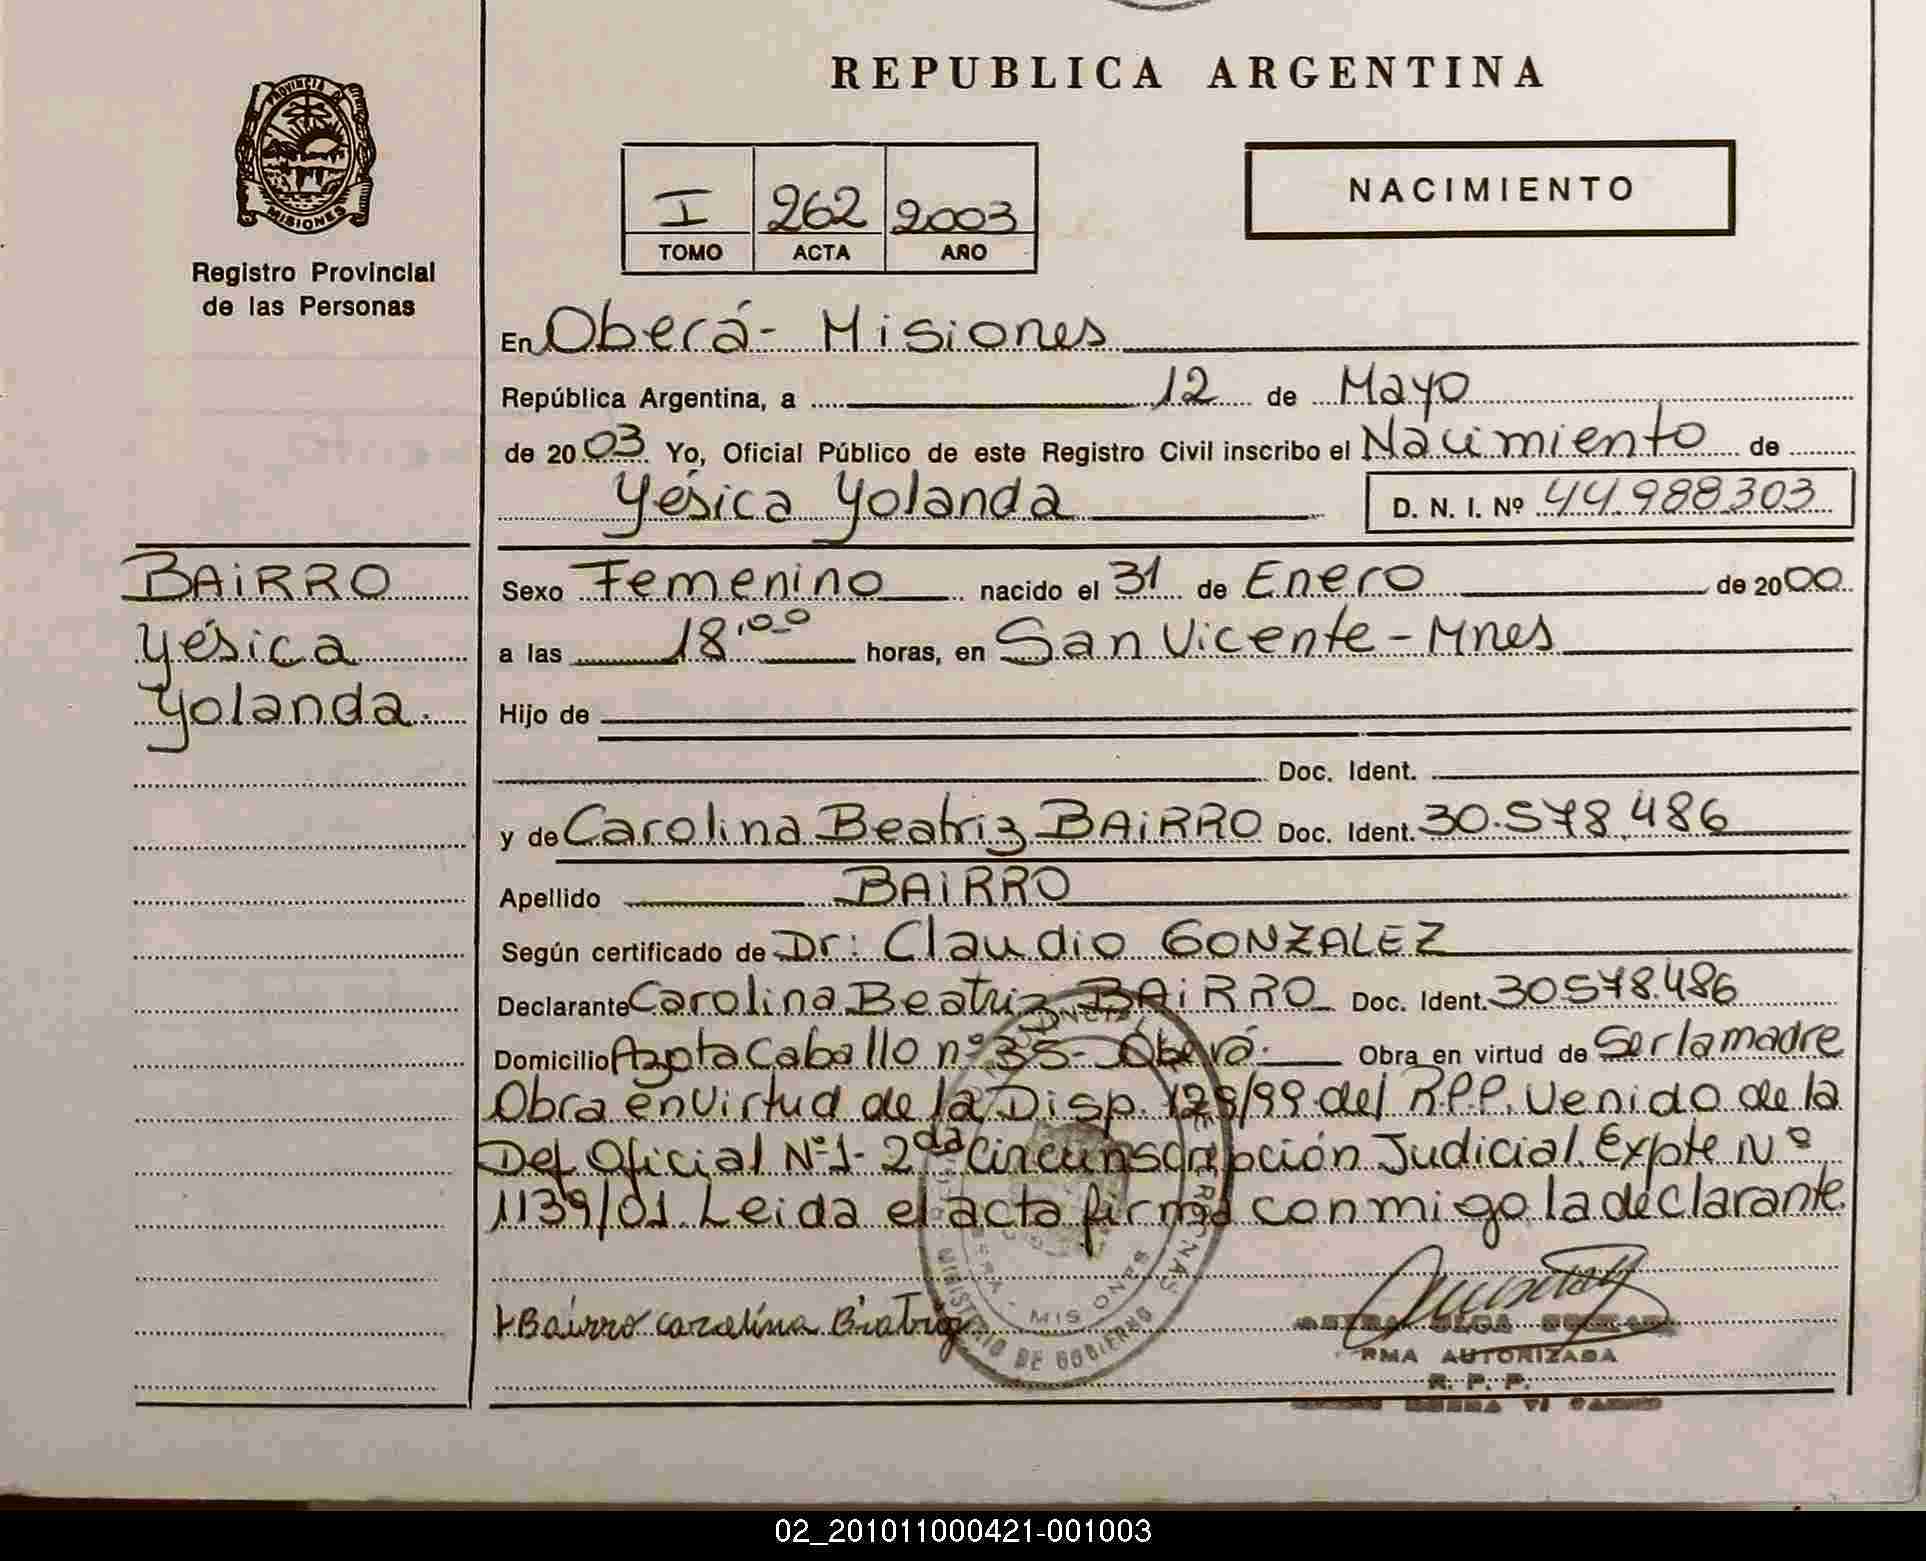 REPUBLICA ARGENTINA
PROVINCIA DE
MISIONES
Registro Provincial
de las Personas
I 262 2003
TOMO ACTA AÑO
NACIMIENTO
En Oberá- Misiones
República Argentina, a 12 de Mayo
de 2003. Yo, Oficial Público de este Registro Civil inscribo el Nacimiento de
Yésica Yolanda D. N. I. Nº 44.988303
BAiRRO
Yésica
Yolanda.
Sexo Femenino nacido el 31 de Enero de 2000
a las 18,00 horas, en San Vicente - Mnes
Hijo de
Doc. Ident.
y de Carolina Beatriz BAiRRO Doc. Ident. 30.578.486
Apellido BAiRRO
Según certificado de Dr: Claudio GONZALEZ
Declarante Carolina Beatriz BAiRRO Doc. Ident. 30578.486
Domicilio Azota Caballo nº 35- Oberá. Obra en virtud de Ser la madre
Obra en Virtud de la Disp. 129/99 del R.P.P. Venido de la
Def. Oficial Nº1- 2da Circunscripción Judicial. Expte Nº
1139/01. Leida el acta firma conmigo la declarante.
Bairro carolina Biatriz
MISIONES
MINISTERIO DE GOBIERNO
OLGA
FIRMA AUTORIZADA
R. P. P.
02_201011000421-001003